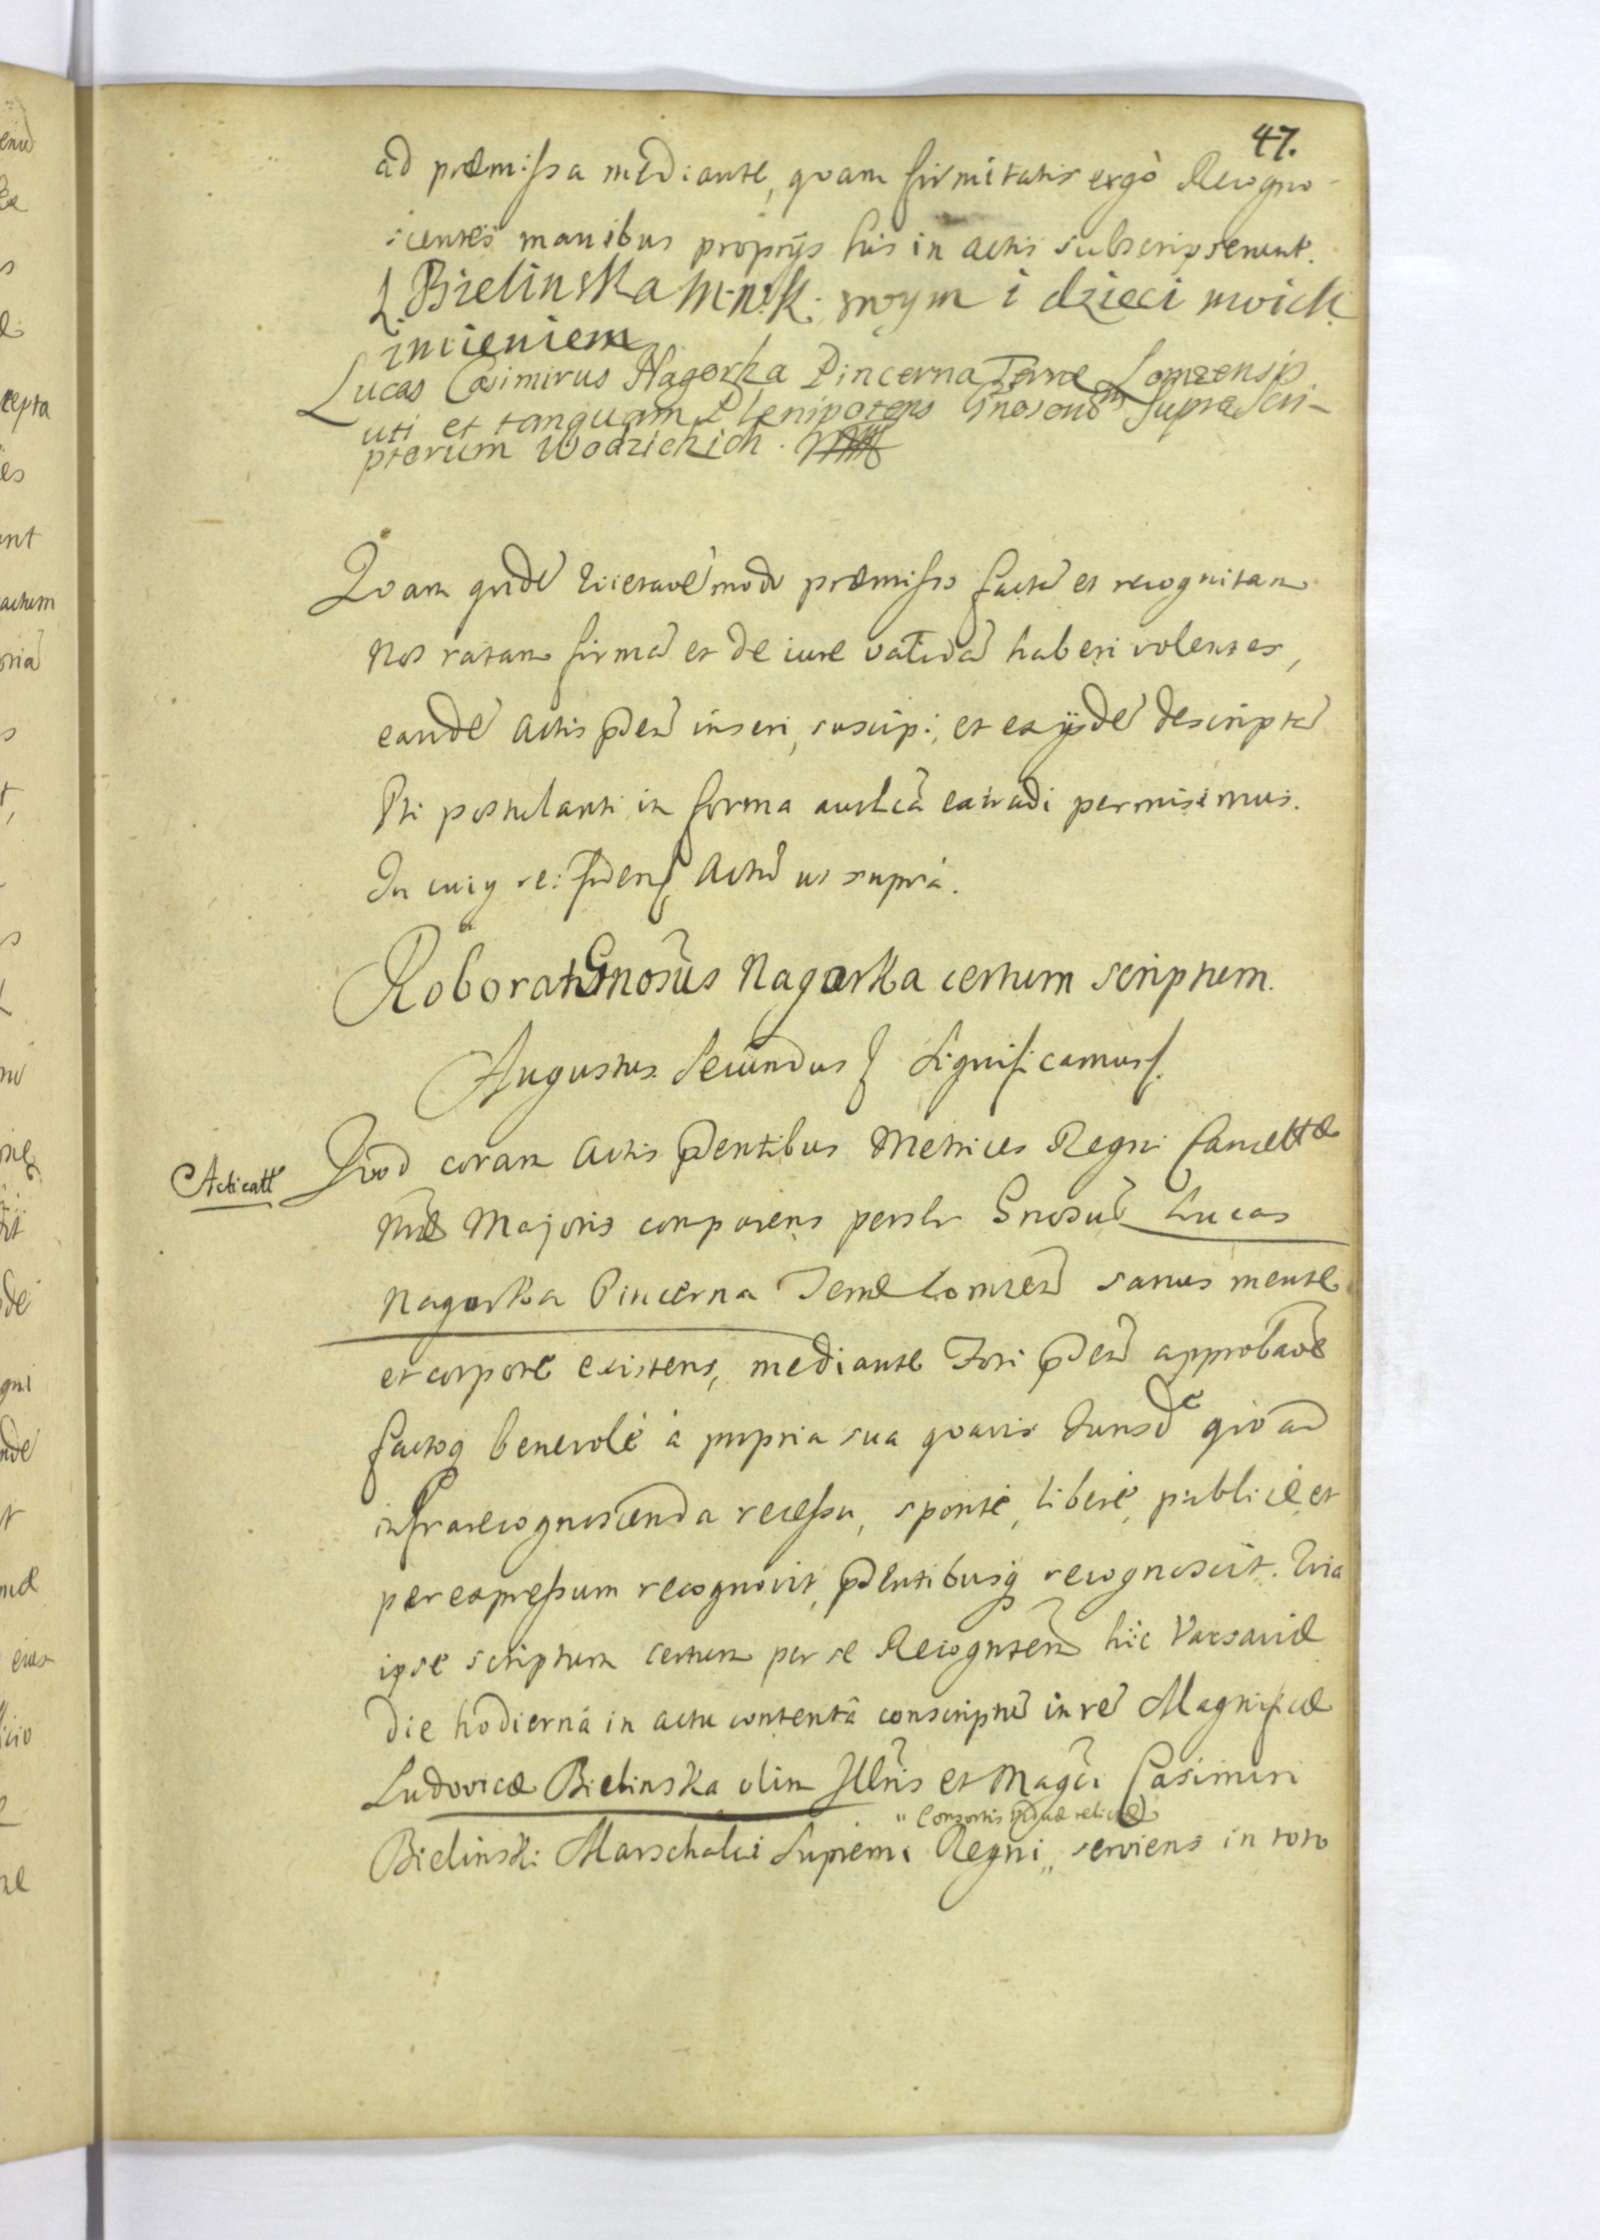 47.
ad præmissa mediante, quam firmitatis ergò Recogno-
scentes manibus proprijs his in actis subscripserunt.
L Bielinska M. n. K. swym i dzieci moich
imieniem
Lucas Casimirus Nagorka Pincerna Terræ Lomzensis
uti et tanquam Plenipotens Gnosorũ Suprascri-
ptorum Wodzickich.
Quam qudẽ modo præmisso factã et recognitam
Nos ratam firmã et de iure validã haberi volentes,
eandẽ Actis pñtibus inseri, suscipi, et ex ijsdẽ descriptã
Pti postulanti in forma authcã extradi permisimus.
In cuiq rei fidem Actũ ut suprà.
Roborat Gnosus Nagorka certum scriptum.
Augustus Secundus Significamus
Acticatt
Quod coram Actis pñtibus Metrices Regni Cancellæ
Nræ Majoris comparens persлr Gnosus Lucas
Nagorka Pincerna Terræ Lomzeñ sanus mente
et corpore existens, mediante Fori pñtis approbaõe
factoq benevolè à propria sua quavis Jurisde quoad
infrarecognoscenda recessu, spontè, liberè, publicè, et
per expressum recognovit, pñtibusq recognoscit. Quia
ipse scriptum certum per se Recognteм hic Varsaviæ
die hodierna in actu contentâ conscriptũ in rẽ Magnificæ
Ludovicæ Bielinska olim Illris et Magci Casimiri
" Consortis viduæ relictæ
Bielinski Marschalci Supremi Regni „ serviens in toto